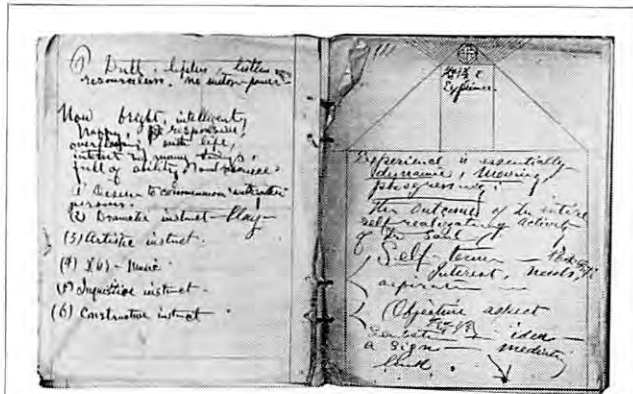 Dull, lifeless, listless
resourceless. no motor-power-
Now bright, intelligent,
happy, responsive,
overflowing with life,
interest in many things,
full of ability, and resource.
1 Desire to commune with other
persons.
(2) Dramatic instinct - Play -
(3) Artistic instinct.
(4) - Music -
(5) Inquisitive instinct -
(6) Constructive instinct -
Experience.
Experience is essentially
dynamic, moving,
progressing.
The outcome of the entire
self-realizating activity
of the Soul
Self-
Interest, needs,
Objective aspect
idea -
a sign -